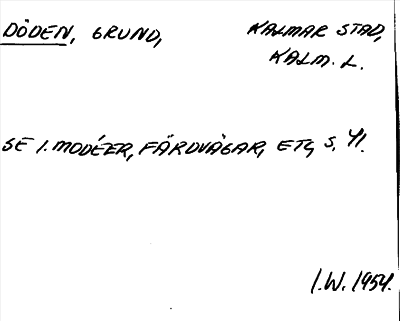 DÖDEN, GRUND, KALMAR STAD,
KALM. L.
SE I. MODÉER, FÄRDVÄGAR, ETC, S. 41.
I.W. 1954.